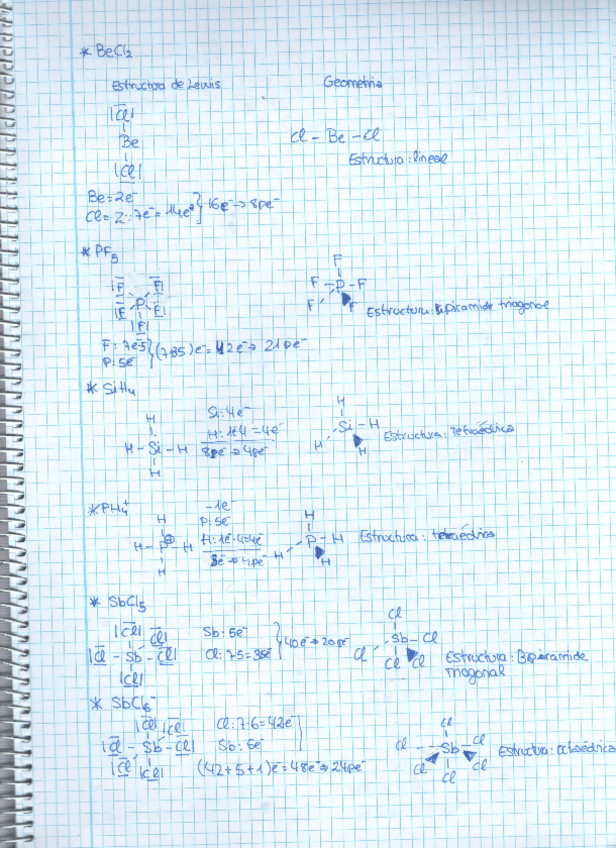 * BeCl2
Estructura de Lewis Geometría
|Cl|
Be
|Cl|
Cl - Be - Cl
Estructura: lineal
Be = 2e⁻
Cl = 2·7e⁻ = 14e⁻ } 16e⁻ → 8pe⁻
* PF5
|F F|
P
|F F|
|F|
F
F - P - F
F F
Estructura: Bipiramide triagonal
F: 7e·5
P: 5e⁻ } (7+35)e⁻ = 42e⁻ → 21pe⁻
* SiH4
H
H - Si - H
H
Si: 4e⁻
H: 1·4 = 4e⁻
8pe⁻ → 4pe⁻
H
Si - H
H H
Estructura: Tetraédrica
* PH4⁺
H
H - P - H
H
⊕
-1e⁻
P: 5e⁻
H: 1e⁻·4 = 4e⁻
8e⁻ → 4pe⁻
H
H P - H
H
Estructura: tetraédrica
* SbCl5
|Cl| Cl|
|Cl - Sb - Cl|
|Cl|
Sb: 5e⁻
Cl: 7·5 = 35e⁻ } 40e⁻ → 20pe⁻
Cl
Sb - Cl
Cl Cl Cl
Estructura: Bipiramide
triagonal
* SbCl6⁻
|Cl| |Cl|
|Cl - Sb - Cl|
|Cl |Cl|
Cl: 7·6 = 42e⁻
Sb: 5e⁻
(42+5+1)e⁻ = 48e⁻ → 24pe⁻
Cl
Cl - Sb Cl
Cl Cl
Cl
Estructura: octaédrica